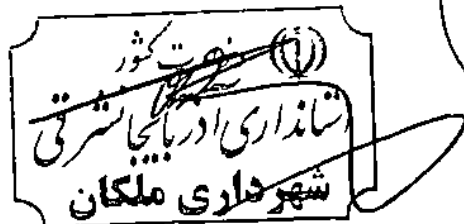 وزارت کشور
استانداری آذربایجانشرقی
شهرداری ملکان